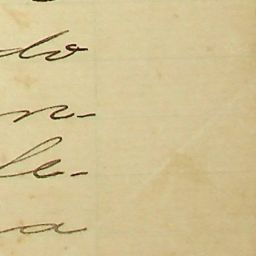 do
n-
le-
a